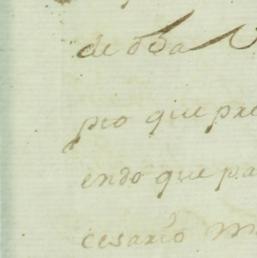 de dda V
pio que pre
endo que pa
cesario m